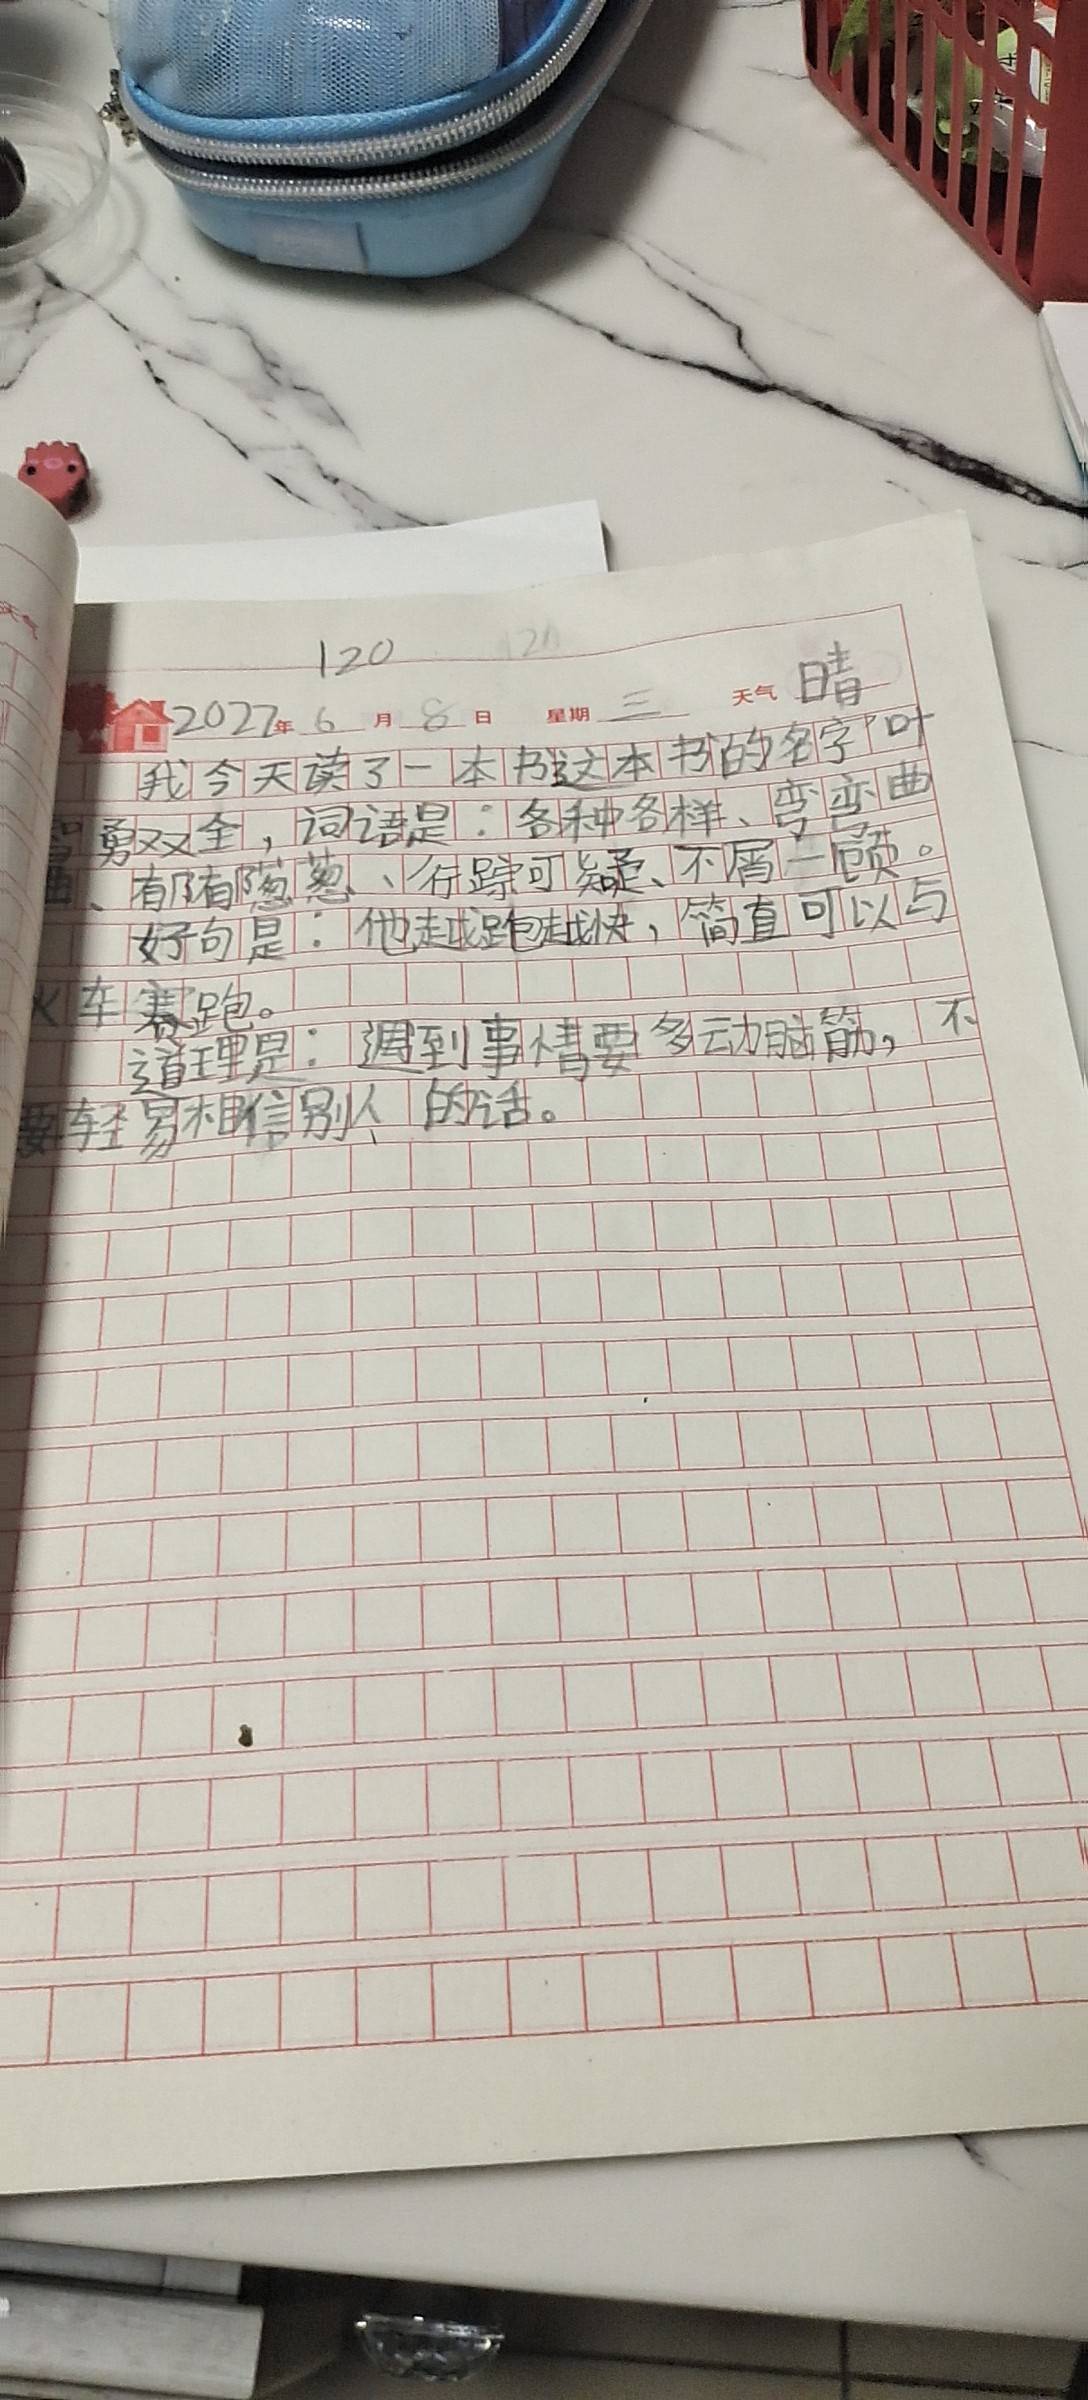 120
2022年 6 月 8 日 星期 三 天气 晴
我今天读了一本书这本书的名字叫
智勇双全，词语是：各种各样、弯弯曲
曲、郁郁葱葱、行踪可疑、不屑一顾。
好句是：他越跑越快，简直可以与
火车赛跑。
道理是：遇到事情要多动脑筋，不
要轻易相信别人的话。